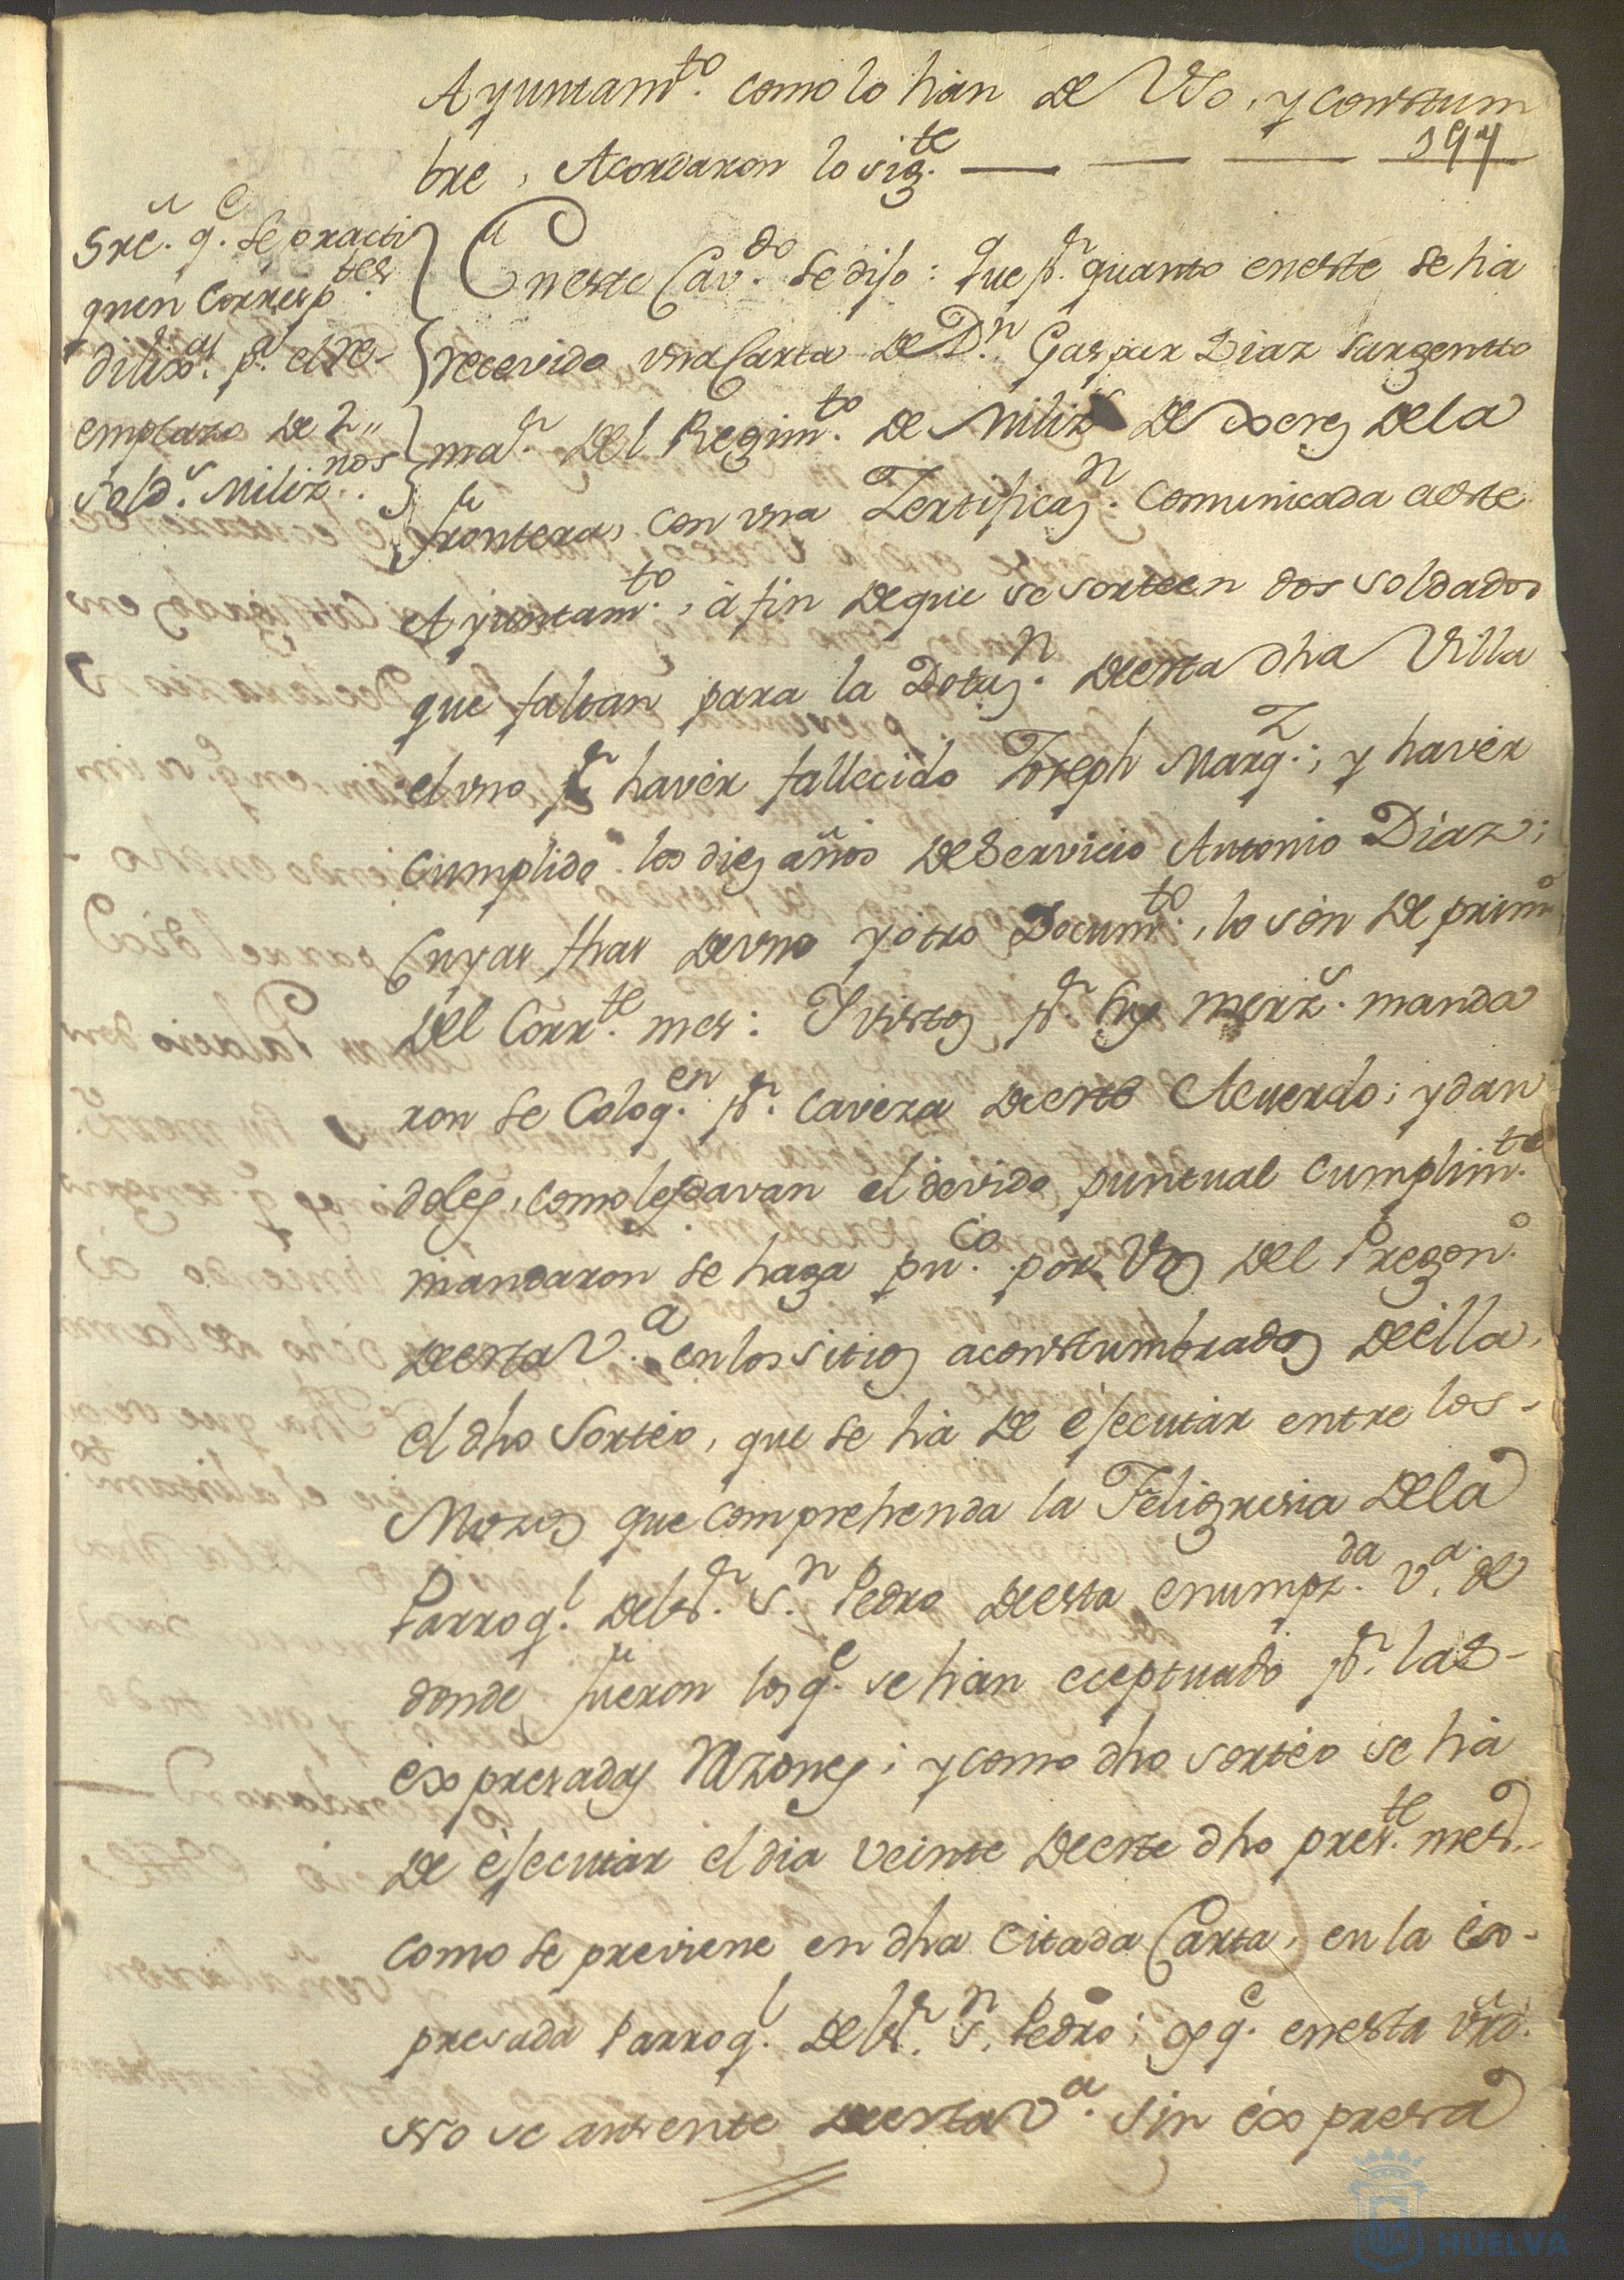 Ayuntam.to como lo han de Vso, y constum
197
bre, Acordaron lo sig.te
Sre. q.e se practi
quen Corresp.tes
dilix.as p.a el re-
emplazo de 2,,
Sold.s Miliz.nos
En este Cav.do se dijo: que p.r quanto en este se ha
recevido vna Carta de D.n Gaspar Diaz Sargentto
ma.r del Regim.to de Miliz.s de Xerez de la
frontera, con vna Zertificaz.n comunicada a este
Ayuntam.to, à fin de que se sorteen dos soldados
que faltan para la Dotaz.n de esta dha Villa
el vno p.r haver fallecido Joseph Marq.z; y haver
Cumplido los diez años de Servicio Antonio Diaz;
Cuyas fhas de vno y otro Docum.to, lo són de prim.o
del Corr.te mes: Y vistos p.r sus merz.s manda
ron se Coloq.en p.r caveza de este Acuerdo; y dan
doles, como les davan el devido puntual cumplim.to
mandaron se haga pu.co por Voz del Pregon.o
de esta V.a en los sitios acostumbrados de èlla,
el dho Sorteo, que se ha de ejecutar entre los-
Mozos que comprehenda la Feligresia de la
Parroq.l del S.r S.n Pedro de esta enumpz.da V.a de
donde fueron los q.e se han eceptuado p.r las-
expresadas Razones; y como dho sorteo se ha
de èjecutar el dia veinte de este dho pres.te mes,-
como se previene en dha citada Carta, en la ex-
presada Parroq.l del S.r S.n Pedro; q.e en esta vrd.
no se ausente de esta V.a sin expresa
HUELVA